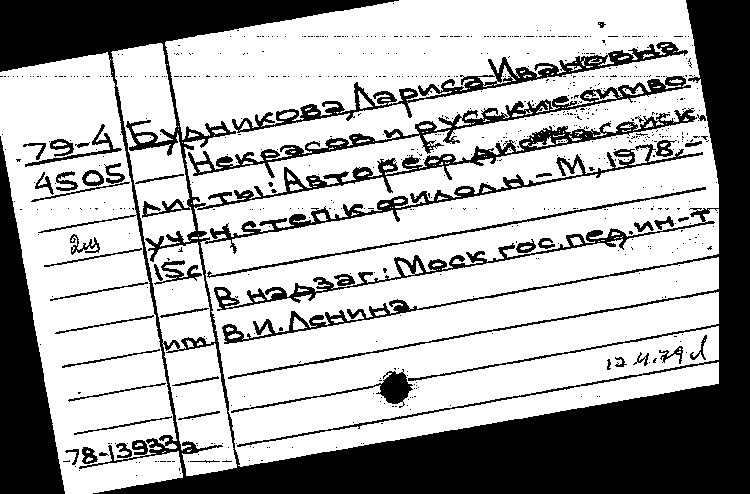 79-4 Будникова, Лариса Ивановна
4505 Некрасов и русские симво-
листы: Автореф. дис. на соиск.
учен. степ. к. филол. н. – М., 1978. –
15 с.
2ш
В надзаг.: Моск. гос. пед. ин-т
им. В. И. Ленина.
78-13933а